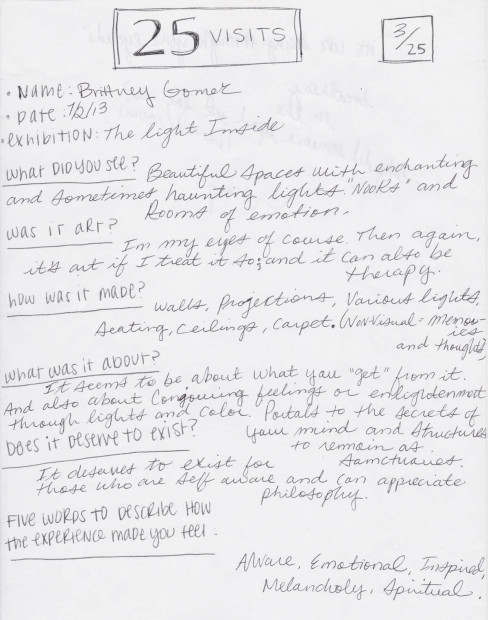 25 VISITS
3/25
• Name: Brittney Gomez
• Date: 7/2/13
• exhibition: The light Inside
what DiD you see? Beautiful spaces with enchanting
and sometimes haunting lights. "NooKs" and
Rooms of emotion.
was it art?
In my eyes of course. Then again,
it's art if I treat it so; and it can also be
therapy.
how was it made?
walls, projections, various lights,
Seating, ceilings, carpet. (Non-visual = memor-
ies
and thoughts)
what was it about?
It seems to be about what you "get" from it.
And also about conjouring feelings or enlightenment
through lights and color. Portals to the secrets of
your mind and structures
to remain as
sanctuaries.
Does it deserve to exist?
It deserves to exist for
those who are self aware and can appreciate
philosophy.
Five words to describe how
the experience made you feel.
Aware, Emotional, Inspired,
Melancholy, Spiritual.